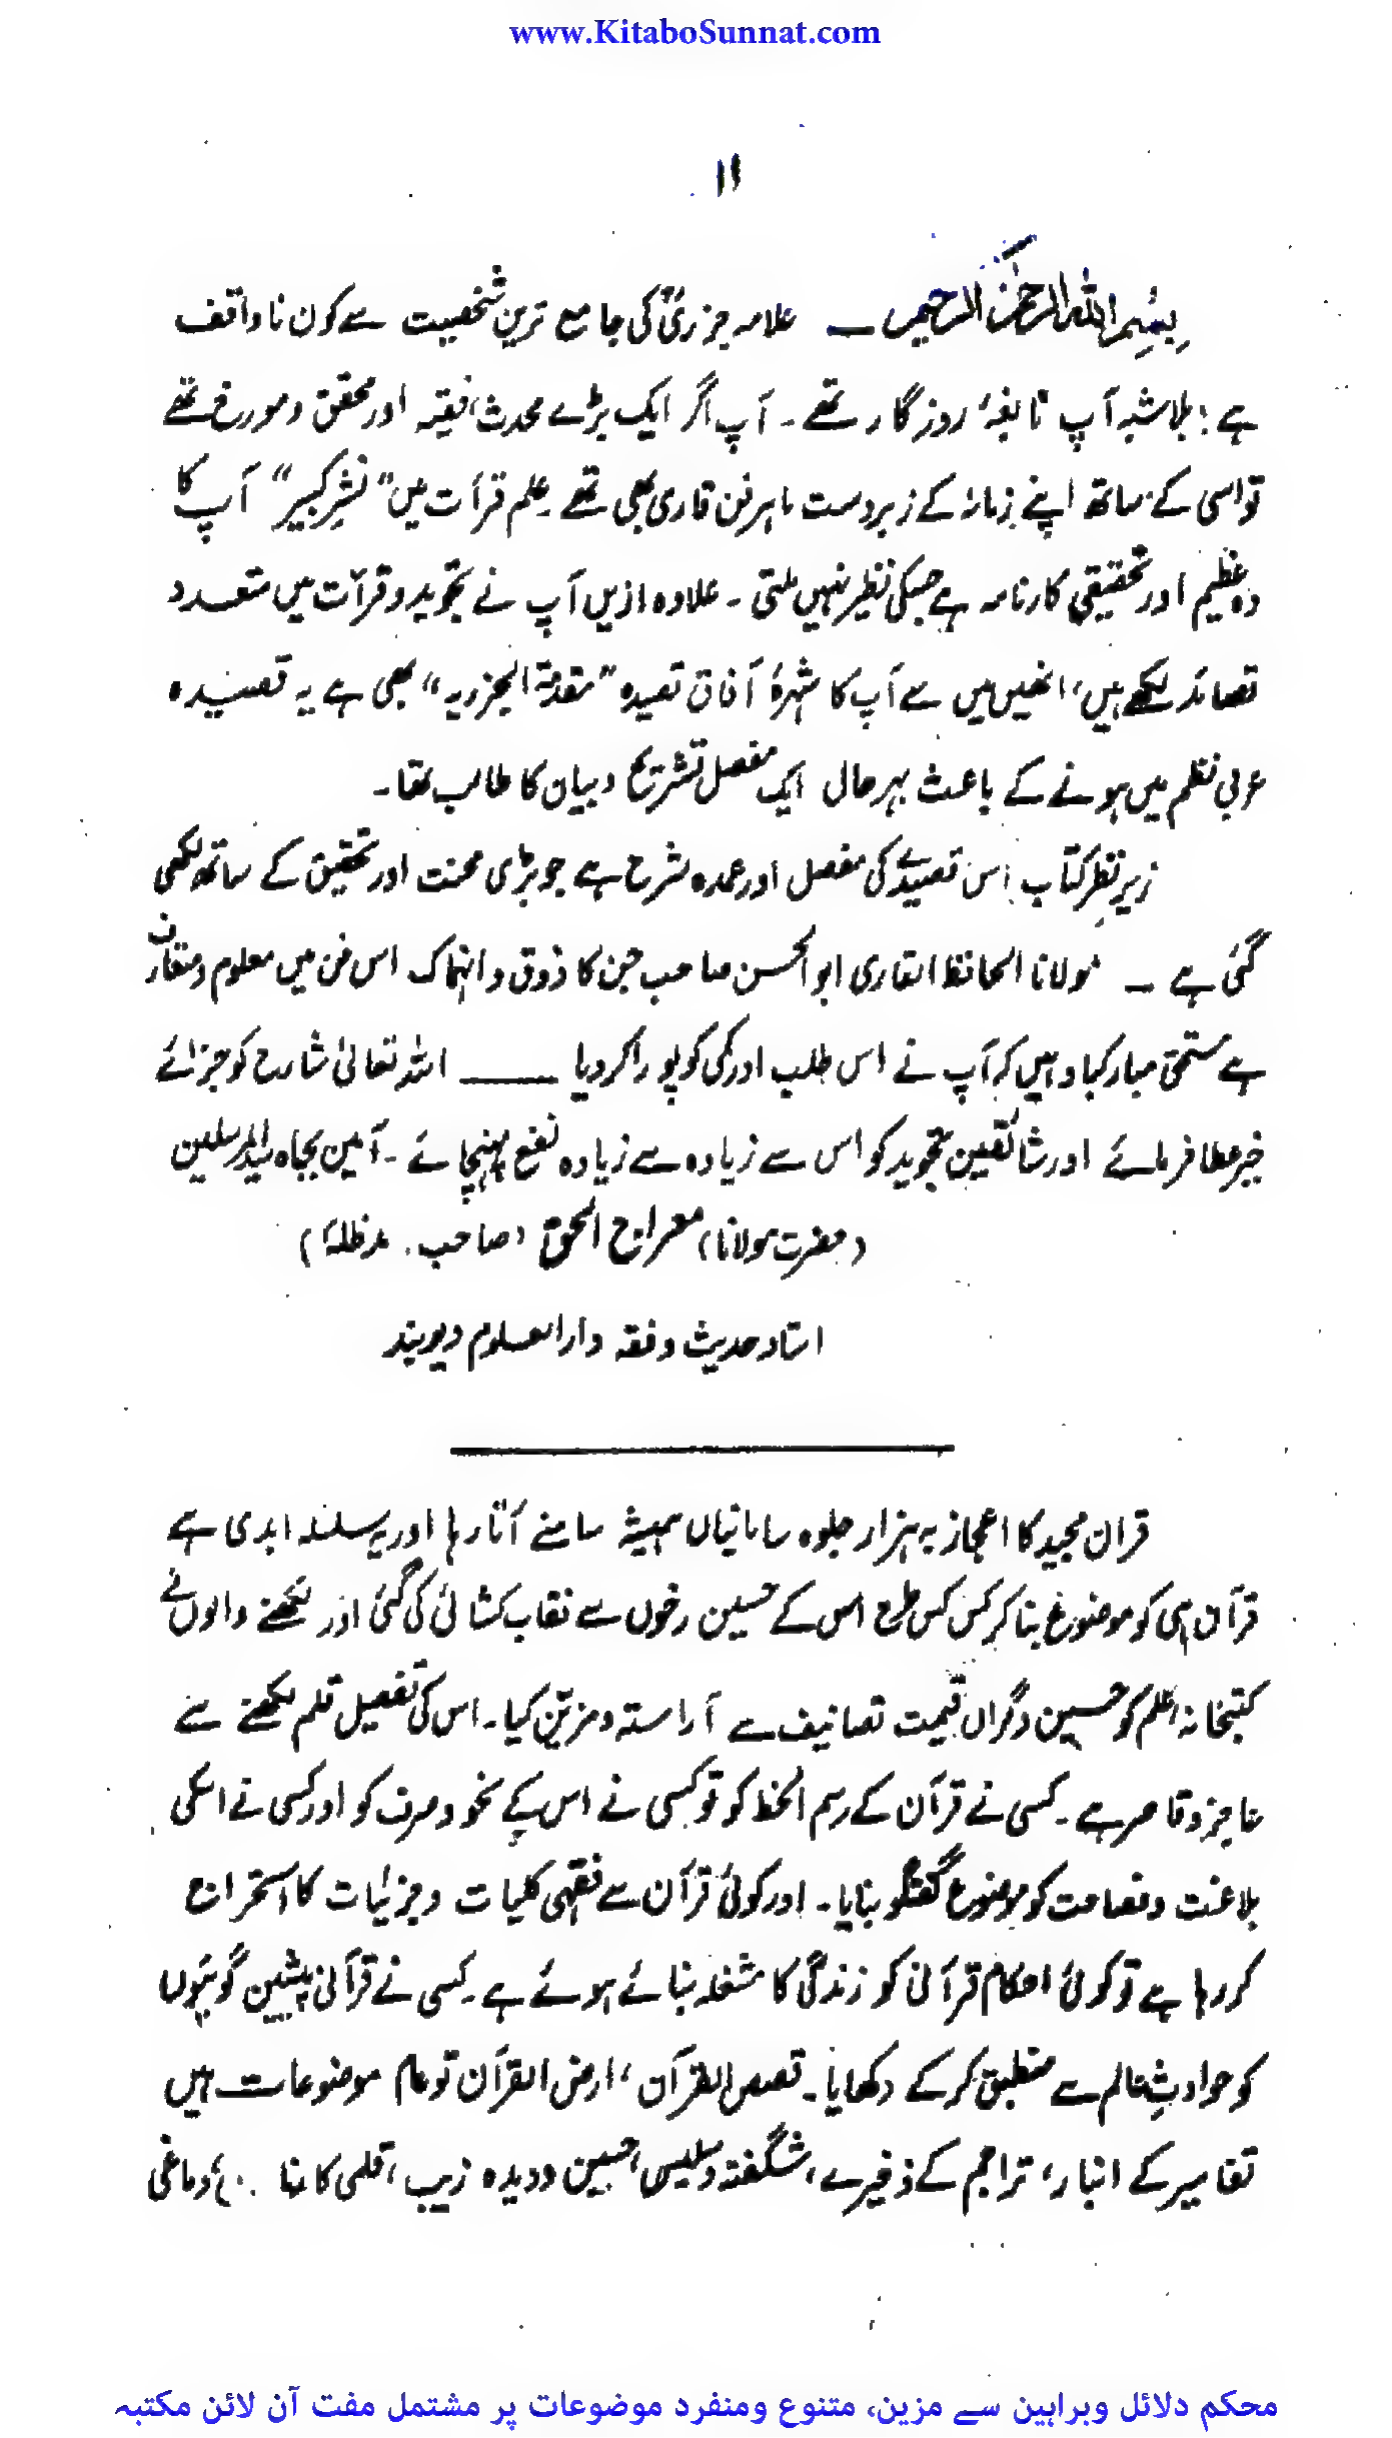 www.KitaboSunnat.com
۱۱
بِسْمِ اللّٰہِ الرَّحْمٰنِ الرَّحِیْمِ — علامہ جزریؒ کی جامع ترین شخصیت سے کون ناواقف
ہے؛ بلاشبہ آپ نابغۂ روزگار تھے۔ آپ اگر ایک بڑے محدث، فقیہ اور محقق ومورخ تھے
تو اسی کے ساتھ اپنے زمانہ کے زبردست ماہر فن قاری بھی تھے۔ علم قرأت میں "نشر کبیر" آپ کا
وہ عظیم اور تحقیقی کارنامہ ہے جسکی نظیر نہیں ملتی۔ علاوہ ازیں آپ نے تجوید وقرآت میں متعدد
قصائد لکھے ہیں، انھیں میں سے آپ کا شہرۂ آفاق قصیدہ "مقدمۃ الجزریہ" بھی ہے یہ قصیدہ
عربی نظم میں ہونے کے باعث بہرحال ایک مفصل تشریح وبیان کا طالب تھا۔
زیر نظر کتاب اس قصیدے کی مفصل اور عمدہ شرح ہے جو بڑی محنت اور تحقیق کے ساتھ لکھی
گئی ہے — مولانا الحافظ القاری ابوالحسن صاحب جن کا ذوق وانہماک اس فن میں معلوم ومتعارف
ہے مستحق مبارکباد ہیں کہ آپ نے اس طلب اور کمی کو پورا کردیا —— اللہ تعالیٰ شارح کو جزائے
خیر عطا فرمائے اور شائقین تجوید کو اس سے زیادہ سے زیادہ نفع پہنچائے۔ آمین بجاہ سید المرسلین
(حضرت مولانا) معراج الحق (صاحب۔ مدظلہٗ)
استاد حدیث وفقہ دارالعلوم دیوبند
قرآن مجید کا اعجاز بہ ہزار جلوہ سامانیاں ہمیشہ سامنے آتا رہا اور یہ سلسلہ ابدی ہے
قرآن ہی کو موضوع بنا کر کس کس طرح اس کے حسین رخوں سے نقاب کشائی کی گئی اور لکھنے والوں نے
کتبخانہ علم کو حسین وگراں قیمت تصانیف سے آراستہ ومزیّن کیا۔ اس کی تفصیل قلم لکھنے سے
عاجز وقاصر ہے۔ کسی نے قرآن کے رسم الخط کو تو کسی نے اس کے نحو وصرف کو اور کسی نے اسکی
بلاغت وفصاحت کو موضوع گفتگو بنایا۔ اور کوئی قرآن سے فقہی کلیات وجزئیات کا استخراج
کررہا ہے تو کوئی احکام قرآنی کو زندگی کا مشغلہ بنائے ہوئے ہے۔ کسی نے قرآنی پیشین گوئیوں
کو حوادثِ عالم سے منطبق کرکے دکھایا۔ قصص القرآن، ارض القرآن تو عام موضوعات ہیں
تفاسیر کے انبار، تراجم کے ذخیرے، شگفتہ وسلیس، حسین ودیدہ زیب، قلمی کارنا ودماغی
محکم دلائل وبراہین سے مزین، متنوع ومنفرد موضوعات پر مشتمل مفت آن لائن مکتبہ